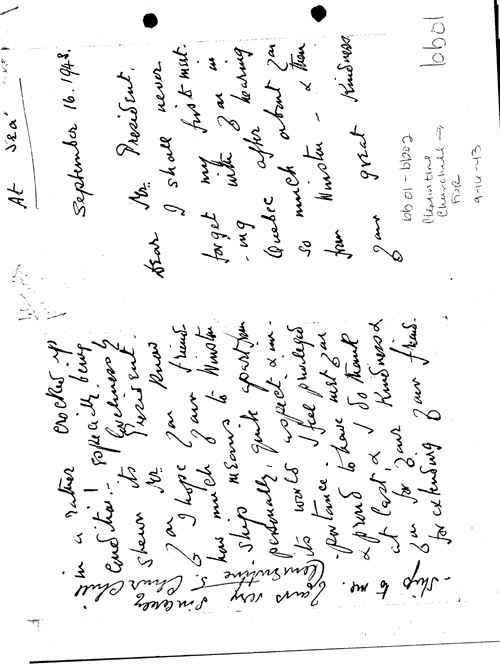 At Sea
September 16. 1943.
Dear Mr. President.
I shall never
forget my first meet
-ing with you in
Quebec after hearing
so much about you
from Winston - & then
your great kindness
bb01
bb01-bb02
Clementine
Churchill →
FDR
9-16-43
in a rather crocked up
condition! - especially being
shewn its loveliness by
Mr. President.
& I hope you know
how much your friend
-ship means to Winston
personally, quite apart from
its world aspect & im-
-portance. I feel privileged
& proud to have met you
at last & I do thank
you for your kindness &
for extending your friend
-ship to me.
Yours very sincerely
Clementine S. Churchill